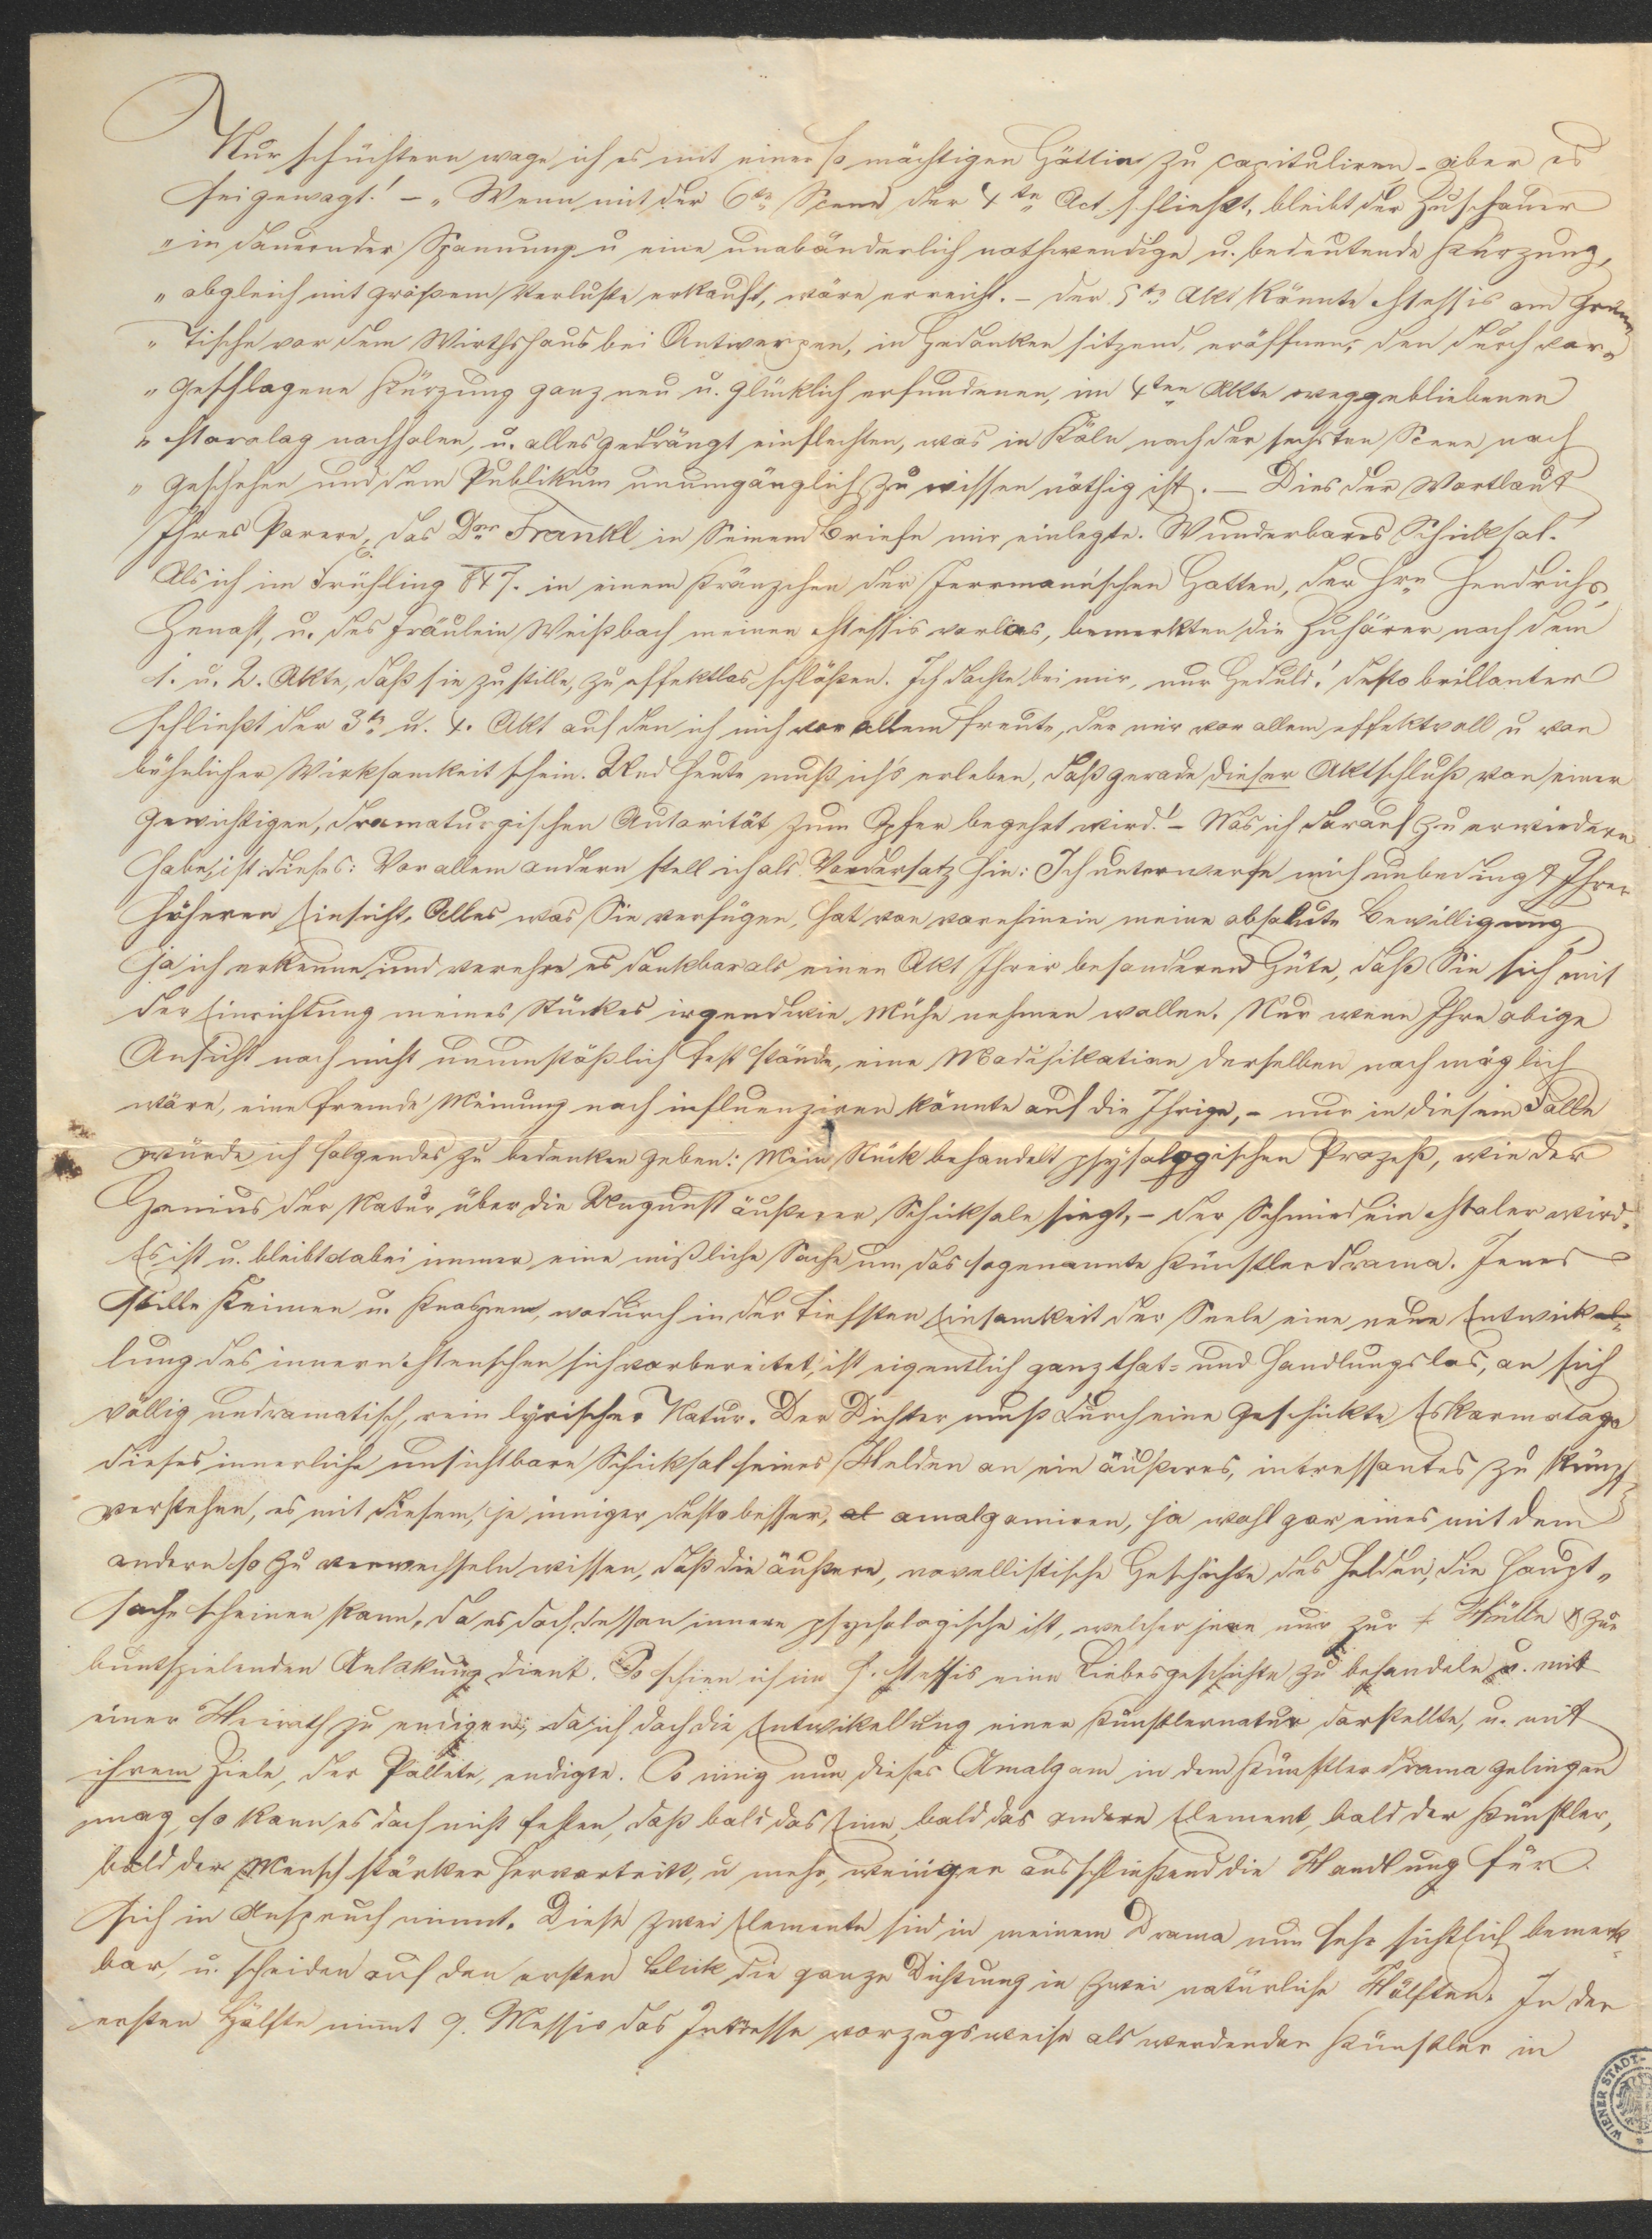 Nur schüchtern wage ich es mit einer so mächtigen Göttin zu capituliren – aber es
sei gewagt! – „Wenn mit der 6ten Scene der 4te Act schließt, bleibt der Zuschauer
„in dauernder Spannung u eine unabänderlich nothwendige u. bedeutende Kürzung,
„obgleich mit großem Verluste erkauft, wäre erreicht. – Der 5te Akt könnte Messis am
„Tische vor dem Wirthshaus bei Antwerpen, in Gedanken sitzend, eröffnen, den durch vor„
„geschlagene Kürzung ganz neu u. glücklich erfundenen, im 4ten Akte weggebliebenen
„Monolog nachholen, u. alles gedrängt einflechten, was in Köln nach der sechsten Scene noch
„geschehen und dem Publikum unumgänglich zu wissen nöthig ist. – Dies der Wortlaut
Ihres Parere, das Dor Frankl in Seinem Briefe mir einlegte. Wunderbares Schicksal!
Als ich im Frühling 847. in einem Kränzchen der Jerrmann'schen Gatten, der Hrn Hendrichs,
Genast, u. des Fräulein Weißbach meinen Messis vorlas, bemerkten die Zuhörer nach dem
1. u. 2. Akte, daß sie zu stille, zu effektlos schlößen. Ich dachte bei mir, nur Geduld! desto brillanter
schließt der 3te u. 4. Akt auf den ich mich vor allem freute, der mir vor allem effektvoll u von
bühnlicher Wirksamkeit schien. Und heute muß ich's erleben, daß gerade dieser Aktschluß von einer
gewichtigen, dramaturgischen Autorität zum Opfer begehrt wird! – Was ich darauf zu erwiedern
habe, ist dieses: Vor allem andern stell ich als Vordersatz hin: Ich unterwerfe mich unbedingt Ihrer
höheren Einsicht. Alles was Sie verfügen, hat von vornhinein meine absolute Bewilligung,
ja ich erkenne und verehre es dankbar als einen Akt Ihrer besonderen Güte, daß Sie sich mit
der Einrichtung meines Stückes irgendwie Mühe nehmen wollen. Nur wenn Ihre obige
Ansicht noch nicht unumstößlich fest stände, eine Modifikation derselben noch möglich
wäre, eine fremde Meinung noch influenziren könnte auf die Ihrige, – nur in diesem Falle
würde ich folgendes zu bedenken geben: Mein Stück behandelt physologischen Prozeß, wie der
Genius der Natur über die Ungunst äußerer Schicksale siegt, – der Schmied ein Maler wird.
Es ist u. bleibt dabei immer eine mißliche Sache um das sogenannte Künstlerdrama. Jenes
stille Keimen u. Knospen, wodurch in der tiefsten Einsamkeit der Seele eine neue Entwickel-
lung des innern Menschen sich vorbereitet, ist eigentlich ganz that- und handlungslos, an sich
völlig undramatisch, rein lyrischer Natur. Der Dichter muß durch eine geschickte Eskamotage
dieses innerliche unsichtbare Schicksal seines Helden an ein äußeres, intressantes zu
verstehen, es mit diesem, je inniger desto besser, al amalgamiren, ja wohl gar eines mit dem
andern so zu verwechseln wissen, daß die äußere, novellistische Geschichte des Helden, die Haupt„
sache scheinen kann, da es doch dessen innere psychologische ist, welcher jene nur zur Hülle zur
buntspielenden Anlokung dient. So schien ich im Q. Messis eine Liebesgeschichte zu behandeln u. mit
einer Heirath zu endigen, da ich doch die Entwikellung einer Künstlernatur darstellte, u. mit
ihrem Ziele, der Pallete, endigte. So innig nun dieses Amalgam in dem Künstlerdrama gelingen
mag, so kann es doch nicht fehlen, daß bald das Eine, bald das andere Element, bald der Künstler,
bald der Mensch stärker hervortritt, u mehr, weniger ausschließend die Handlung für
sich in Anspruch nimmt. Diese zwei Elemente sind in meinem Drama nun sehr sichtlich bemerk-
bar, u. scheiden auf den ersten Blick die ganze Dichtung in zwei natürliche Hälften. In der
ersten Hälfte nimmt Q. Messis das Intresse vorzugsweise als werdender Künstler in
WIENER STADT-